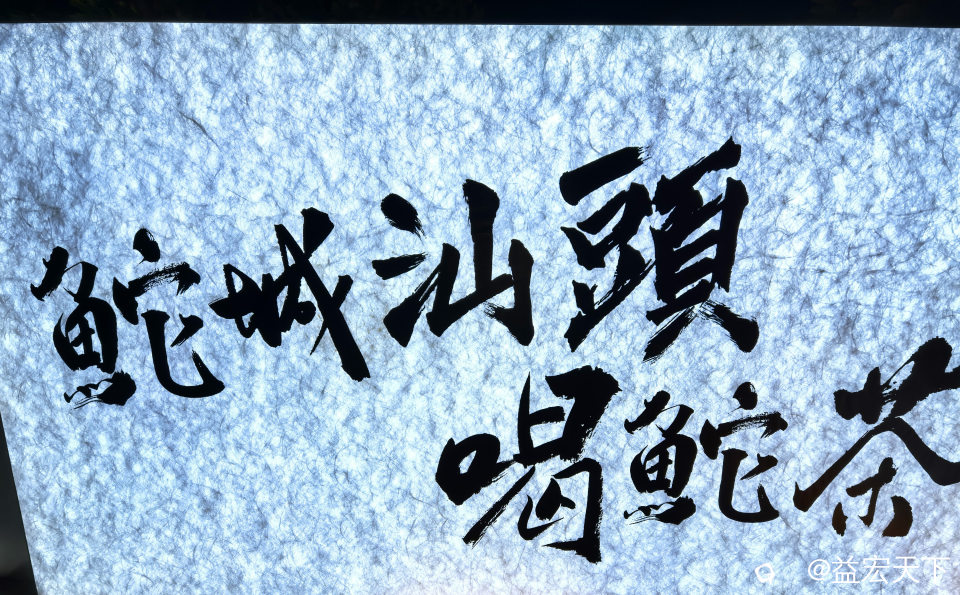 鮀城汕頭
喝鮀茶
@益宏天下